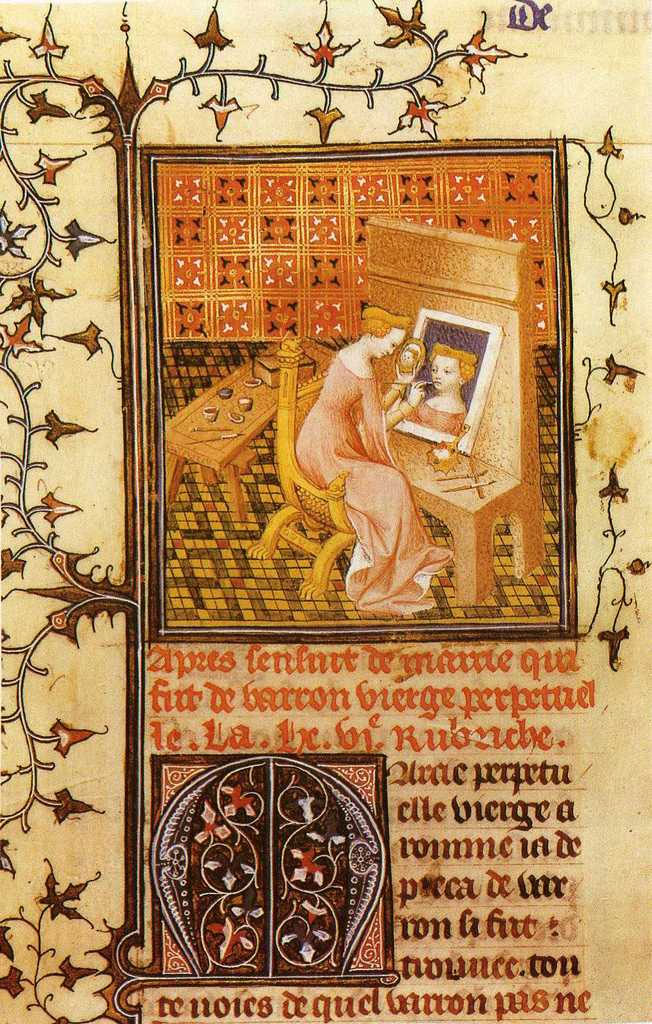 De
Apres sensuit de marcie qui
fut de varron vierge perpetuel
le . La . lx . vi͏ᵉ . Rubriche .
Marcie perpetu
elle vierge a
romme ia de
pieca de var
ron si fut
trouuee . tou
te uoies de quel varron pas ne